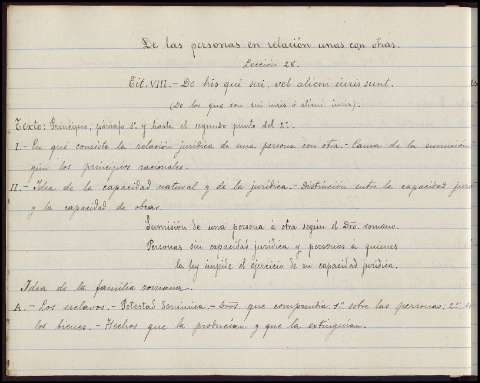 De las personas en relación unas con otras.
Lección 28.
Tit. VIII.- De his qui sui, vel alieni iuris sunt.
(De los que son sui iuris ó alieni iuris).
Texto: Principio, párrafo 1º y hasta el segundo punto del 2º.
I.- En qué consiste la relación jurídica de una persona con otra.- Causa de la sumisión
gún los principios racionales.
II.- Idea de la capacidad natural y de la jurídica.- Distinción entre la capacidad
y la capacidad de obrar.
Sumisión de una persona á otra según el Dro. romano.
Personas sin capacidad jurídica y personas á quienes
la ley impide el ejercicio de su capacidad jurídica.
Idea de la familia romana.
A.- Los esclavos.- Potestad dominica.- Dros. que comprendia 1º sobre las personas, 2º
los bienes.- Hechos que la producían y que la extinguían.